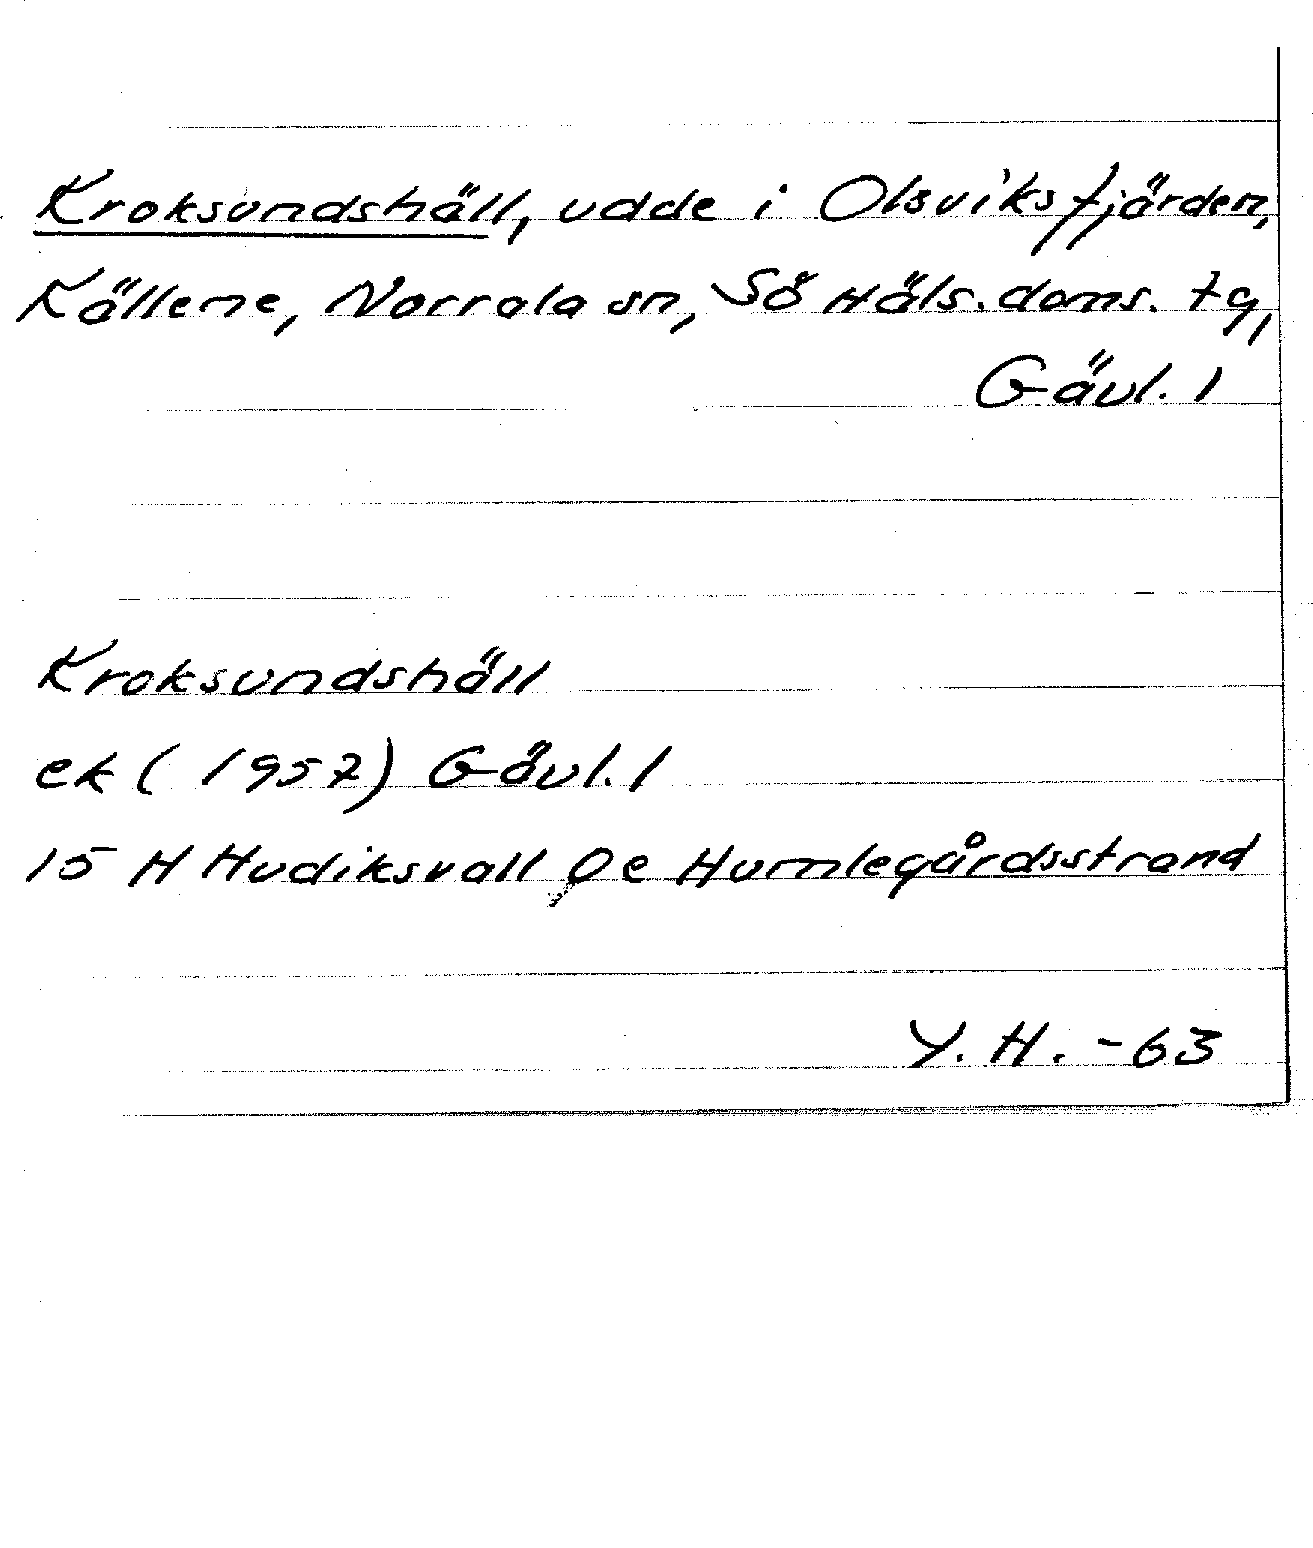 Kroksundshäll, udde i Olsviksfjärden,
Källene, Norrala sn, Sö Häls. doms. tg,
Gävl. l
Kroksundshäll
ek ( 1957) Gävl. l
15 H Hudiksvall De Humlegårdsstrand
Y. H. - 63